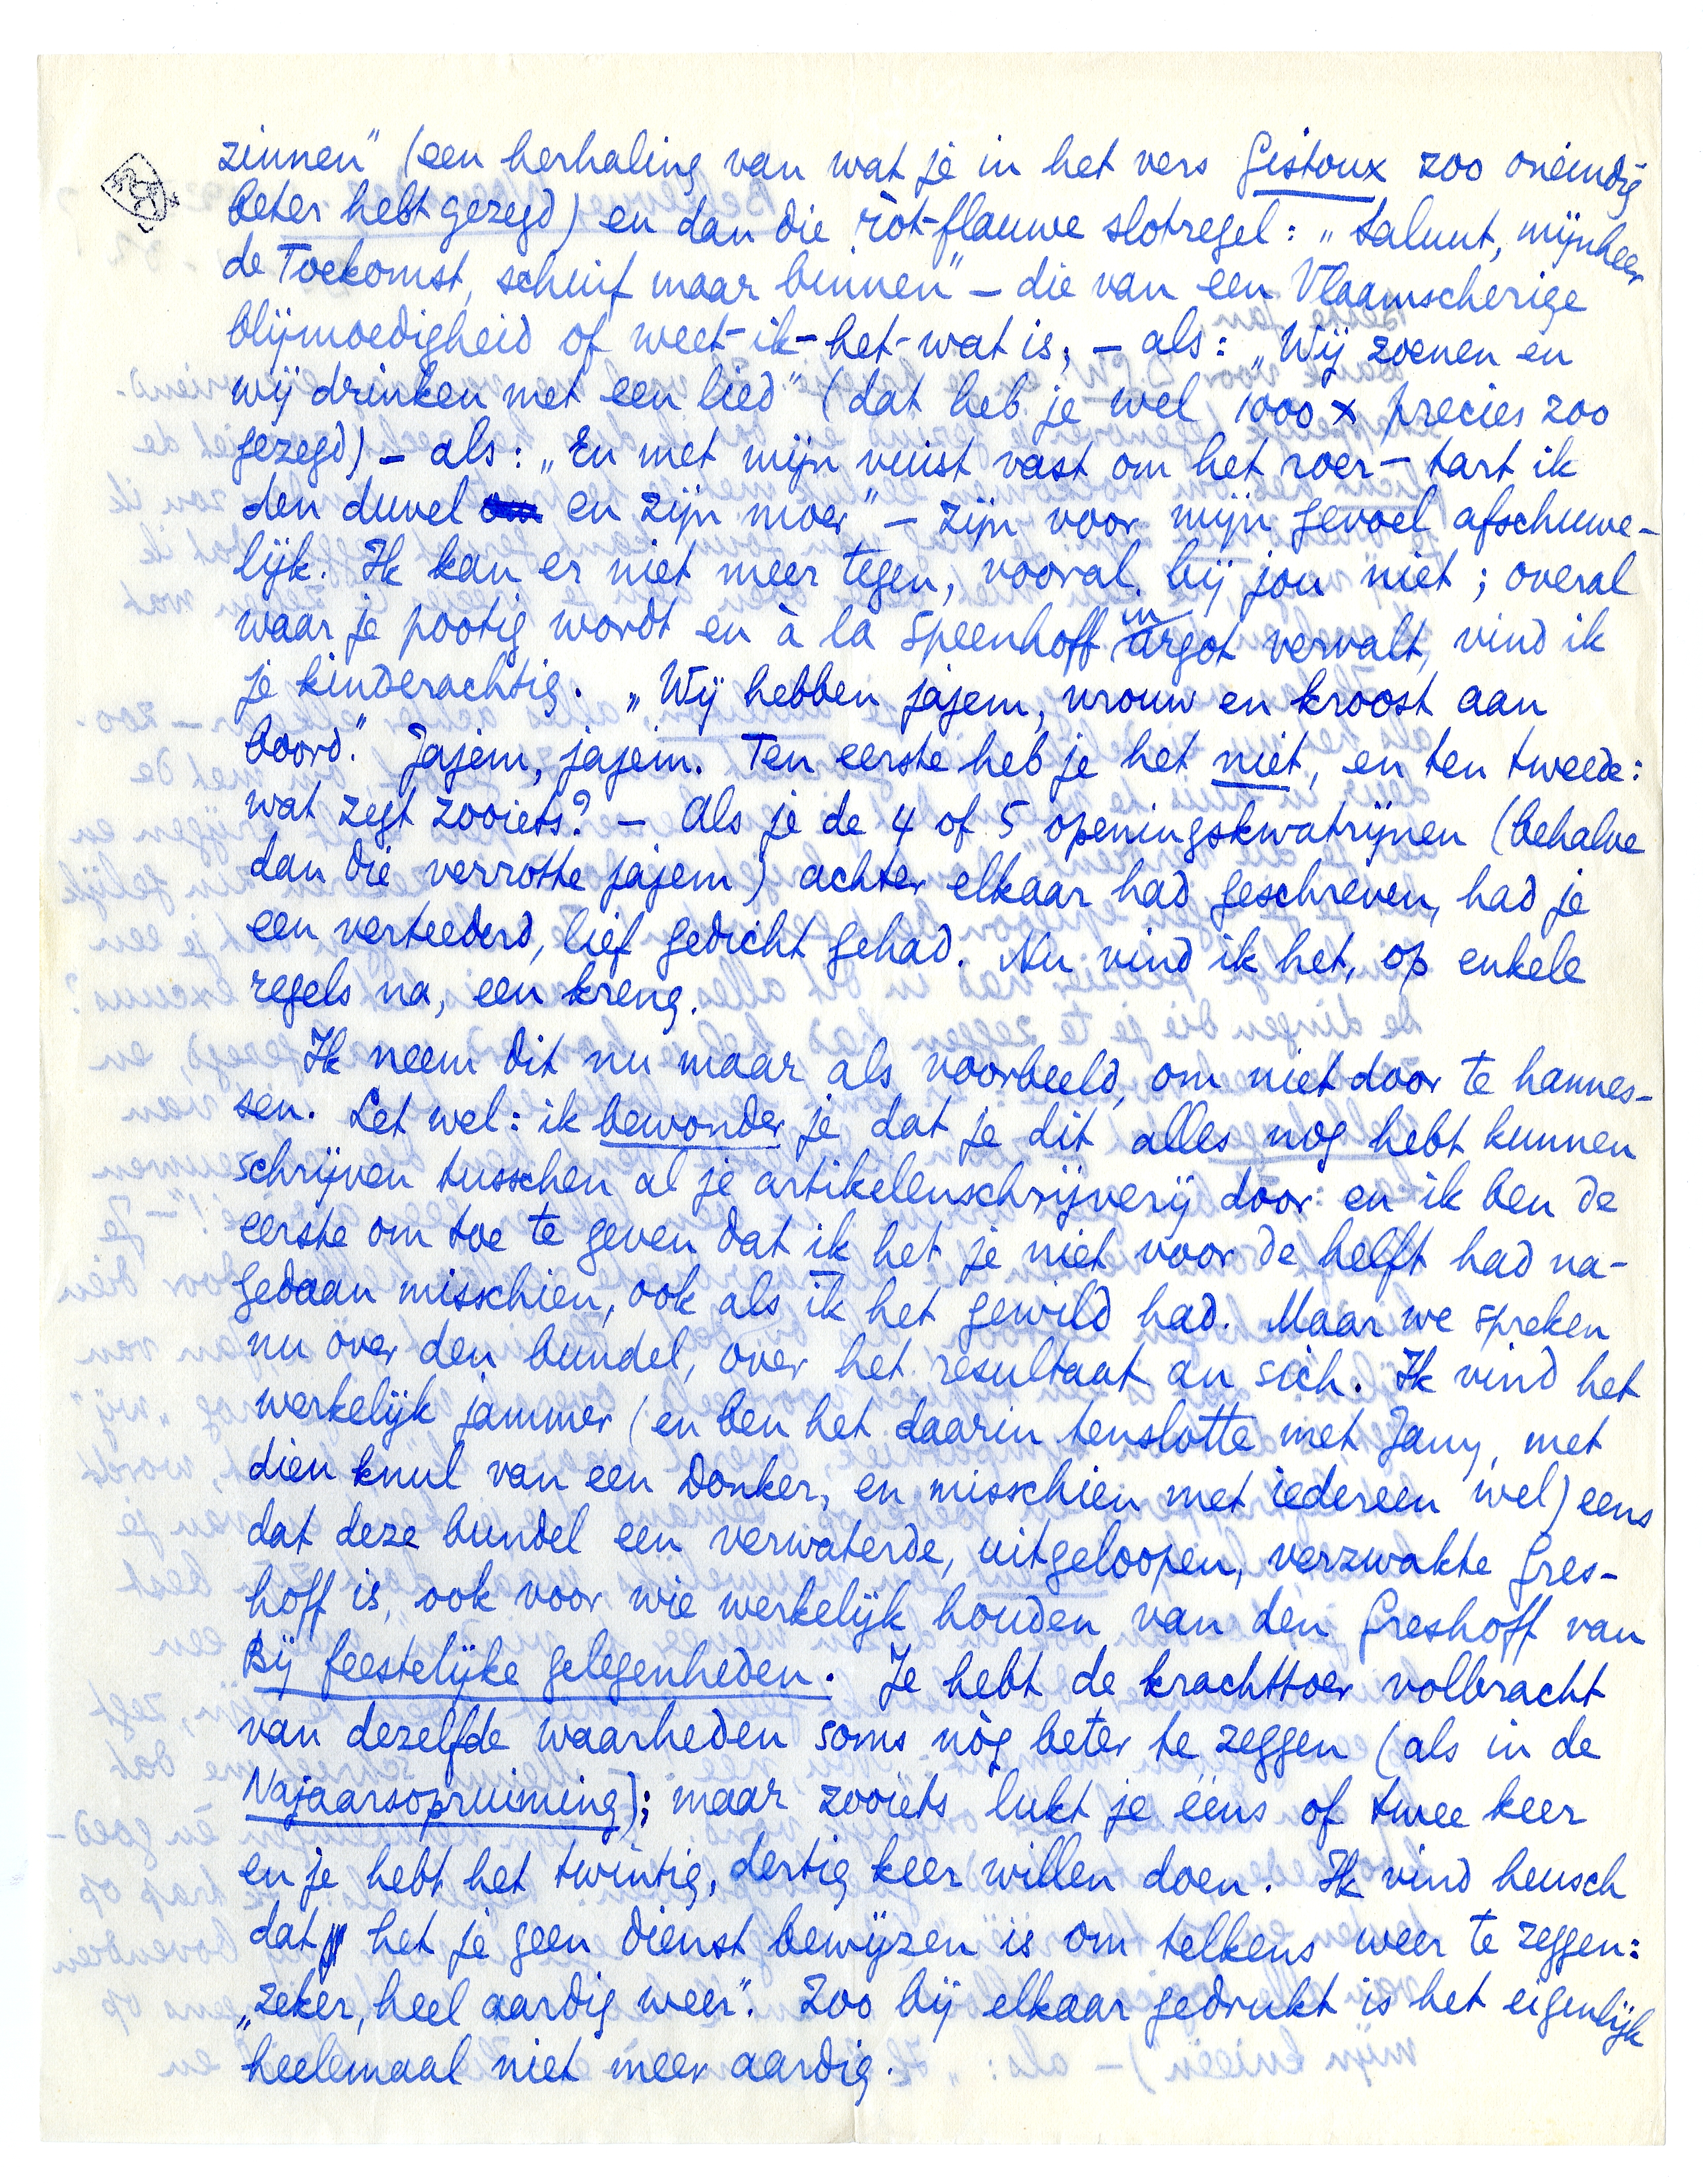 zinnen" (een herhaling van wat je in het vers Gistoux zoo oneindig
beter hebt gezegd) en dan die ròt-flauwe slotregel: „Saluut, mijnheer
de Toekomst, schuif maar binnen" – die van een Vlaamscherige
blijmoedigheid of weet-ik-het-wat is; – als: „Wij zoenen en
wij drinken met een lied" (dat heb je wel 1000 x precies zoo
gezegd) – als: „En met mijn vuist vast om het roer – tart ik
den duvel en zijn moer" – zijn voor mijn gevoel afschuwe-
lijk. Ik kan er niet meer tegen, vooral bij jou niet; overal
waar je pootig wordt en à la Speenhoff in argot vervalt, vind ik
je kinderachtig. „Wij hebben jajem, vrouw en kroost aan
boord." Jajem, jajem. Ten eerste heb je het niet, en ten tweede:
wat zegt zooiets? – Als je de 4 of 5 openingskwatrijnen (behalve
dan die verrotte jajem) achter elkaar had geschreven, had je
een verteederd, lief gedicht gehad. Nu vind ik het, op enkele
regels na, een kreng.
Ik neem dit nu maar als voorbeeld, om niet door te hannes-
sen. Let wel: ik bewonder je dat je dit alles nog hebt kunnen
schrijven tusschen al je artikelenschrijverij door: en ik ben de
eerste om toe te geven dat ik het je niet voor de helft had na-
gedaan misschien, ook als ik het gewild had. Maar we spreken
nu over den bundel, over het resultaat an sich. Ik vind het
werkelijk jammer (en ben het daarin tenslotte met Jany, met
dien knul van een Donker, en misschien met iedereen wel) eens
dat deze bundel een verwaterde, uitgeloopen, verzwakte Gres-
hoff is, ook voor wie werkelijk houden van den Greshoff van
Bij feestelijke gelegenheden. Je hebt de krachttoer volbracht
van dezelfde waarheden soms nòg beter te zeggen (als in de
Najaarsopruiming); maar zooiets lukt je ééns of twee keer
en je hebt het twintig, dertig keer willen doen. Ik vind heusch
dat het je geen dienst bewijzen is om telkens weer te zeggen:
„zeker, heel aardig weer". Zoo bij elkaar gedrukt is het eigenlijk
heelemaal niet meer aardig.